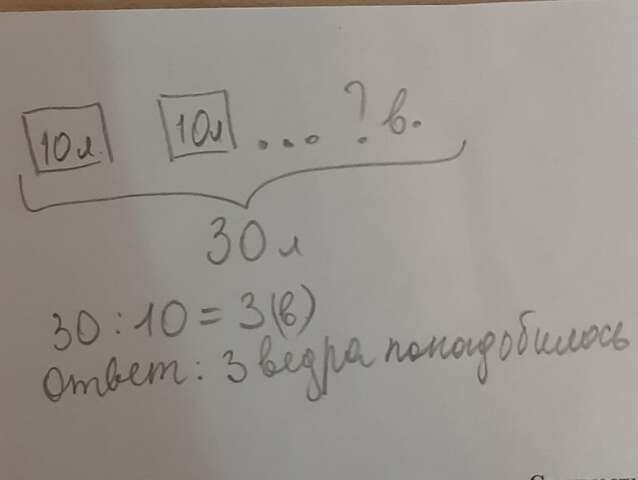 10л. 10л ... ? в.
30 л
30 : 10 = 3 (в)
Ответ: 3 ведра понадобилось